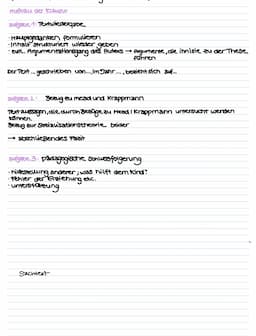 Aufbau der Klausur
Aufgabe 1: Textwiedergabe
- Hauptgedanken formulieren
- Inhalt strukturiert wieder geben
- evtl. Argumentationsgang des Autors → Argumente, die im Bilde zu der These
führen
Der Text ... geschrieben von ... im Jahr ..., bezieht sich auf ...
Aufgabe 2: Bezug zu Mead und Krappmann
Textaussagen, die durch Bezüge zu Mead / Krappmann untersucht werden
können
Bezug zur Sozialisationstheorie beider
→ abschließendes Fazit
Aufgabe 3: pädagogische Schlussfolgerung
- Hilfestellung anderer, was hilft dem Kind?
- Fehler der Erziehung etc.
- Unterstützung
Sachtext